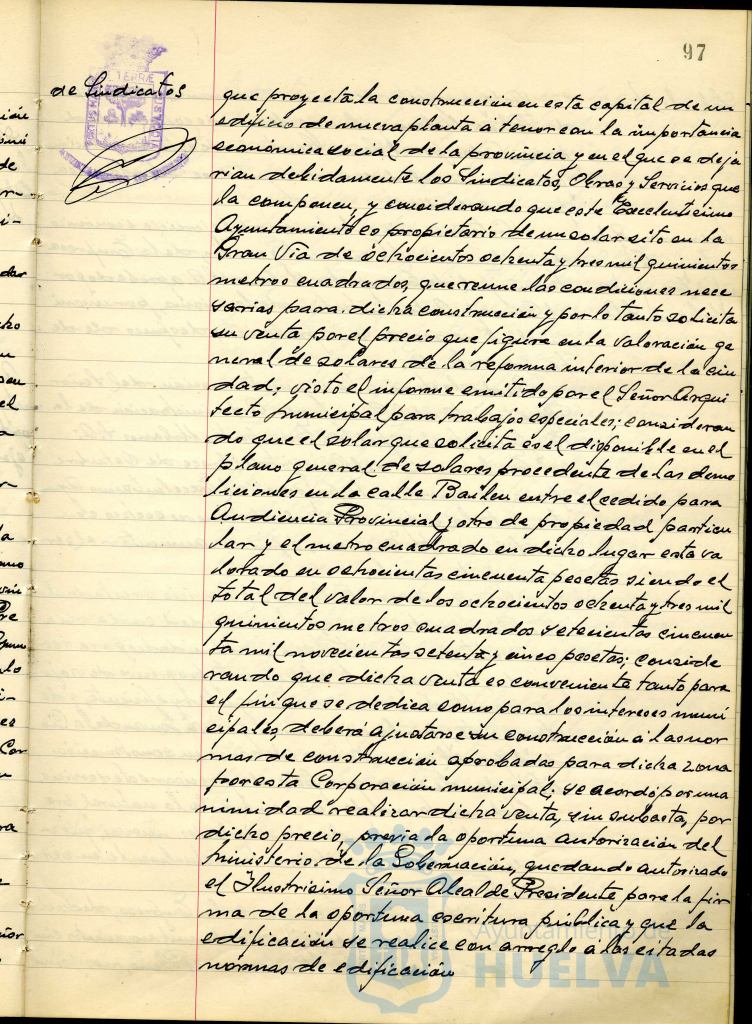 97
de Sindicatos
que proyecta la construccion en esta capital de un
edificio de nueva planta a tenor con la importancia
económica social de la provincia y en el que se deja
rian debidamente los Sindicatos, Obras y Servicios que
la componen, y considerando que este Excelentisimo
Ayuntamiento es propietario de un solar sito en la
Gran Via de ochocientos ochenta y tres mil quinientos
metros cuadrados, que reune las condiciones nece
sarias para dicha construccion y por lo tanto solicita
su venta por el precio que figura en la valoración ge
neral de solares de la reforma interior de la ciu
dad; visto el informe emitido por el Señor Arqui
tecto municipal para trabajos especiales; consideran
do que el solar que solicita es el disponible en el
plano general de solares procedente de las demo
liciones en la calle Bailen entre el cedido para
Audiencia Provincial y otro de propiedad particu
lar y el metro cuadrado en dicho lugar esta va
lorado en ochocientas cincuenta pesetas siendo el
total del valor de los ochocientos ochenta y tres mil
quinientos metros cuadrados setecientas cincuen
ta mil novecientas setenta y cinco pesetas; conside
rando que dicha venta es conveniente tanto para
el fin que se dedica como para los intereses muni
cipales, deberá ajustarse su construcción á las nor
mas de construcción aprobadas para dicha zona
por esta Corporación municipal; se acordó por una
nimidad realizar dicha venta, sin subasta, por
dicho precio, previa la oportuna autorización del
Ministerio de la Gobernación, quedando autorizado
el Ilustrisimo Señor Alcalde Presidente para la fir
ma de la oportuna escritura pública y que la
edificación se realice con arreglo á las citadas
normas de edificación
Ayuntamiento de
HUELVA